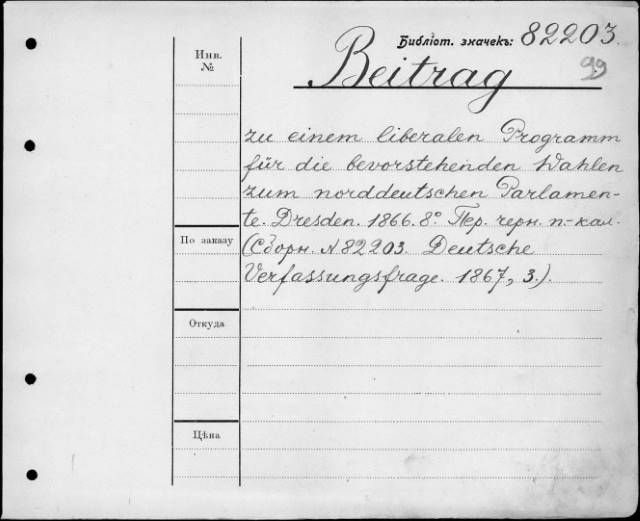 Библіот. значекъ: 82203.
99
Инв.
№
Beitrag
zu einem liberalen Programm
für die bevorstehenden Wahlen
zum norddeutschen Parlamen-
te. Dresden. 1866. 8° Пер. черн. п-кал.
По заказу
(Сборн. N 82203. Deutsche
Verfassungsfrage. 1867, 3.).
Откуда
Цѣна